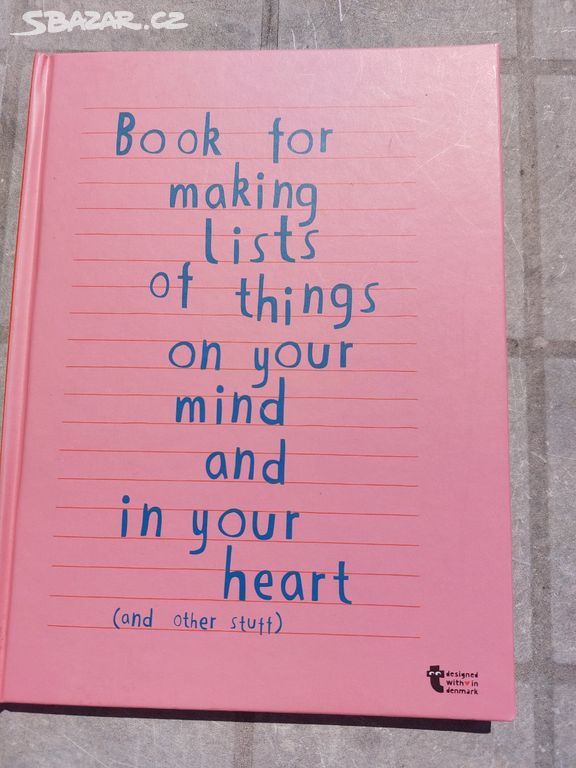 SBAZAR.CZ
Book for
making
lists
of things
on your
mind
and
in your
heart
(and other stuff)
designed
with♥in
denmark